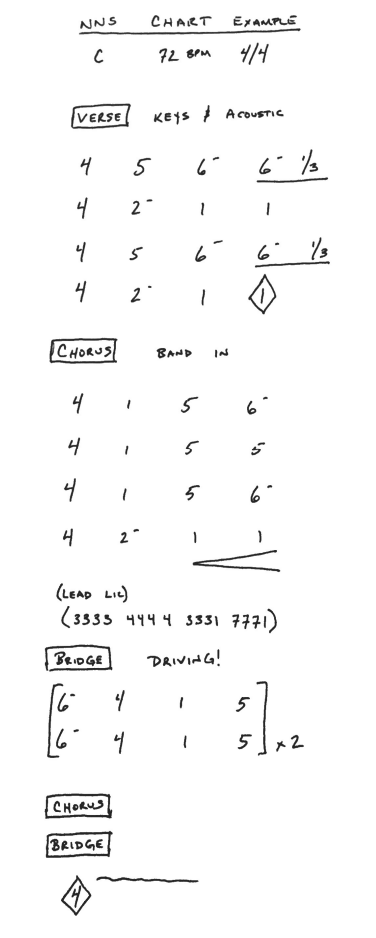 NNS CHART EXAMPLE
C 72 BPM 4/4
VERSE KEYS & ACOUSTIC
4 5 6- 6- 1/3
4 2- 1 1
4 5 6- 6- 1/3
4 2- 1 1
CHORUS BAND IN
4 1 5 6-
4 1 5 5
4 1 5 6-
4 2- 1 1
(LEAD LIC)
(3333 4444 3331 7771)
BRIDGE DRIVING!
[6- 4 1 5
6- 4 1 5] x2
CHORUS
BRIDGE
4